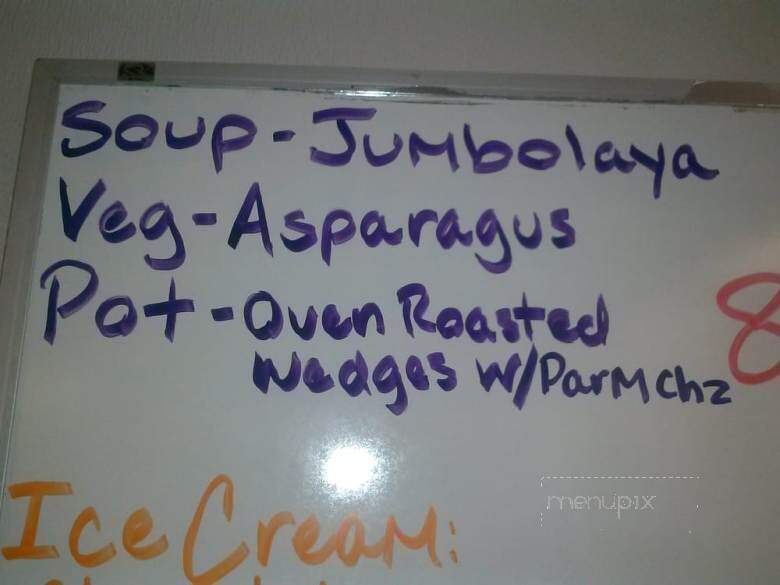 Soup - Jumbolaya
Veg - Asparagus
Pot - Oven Roasted
Wedges w/ Parm chz
8
Ice Cream:
menupix